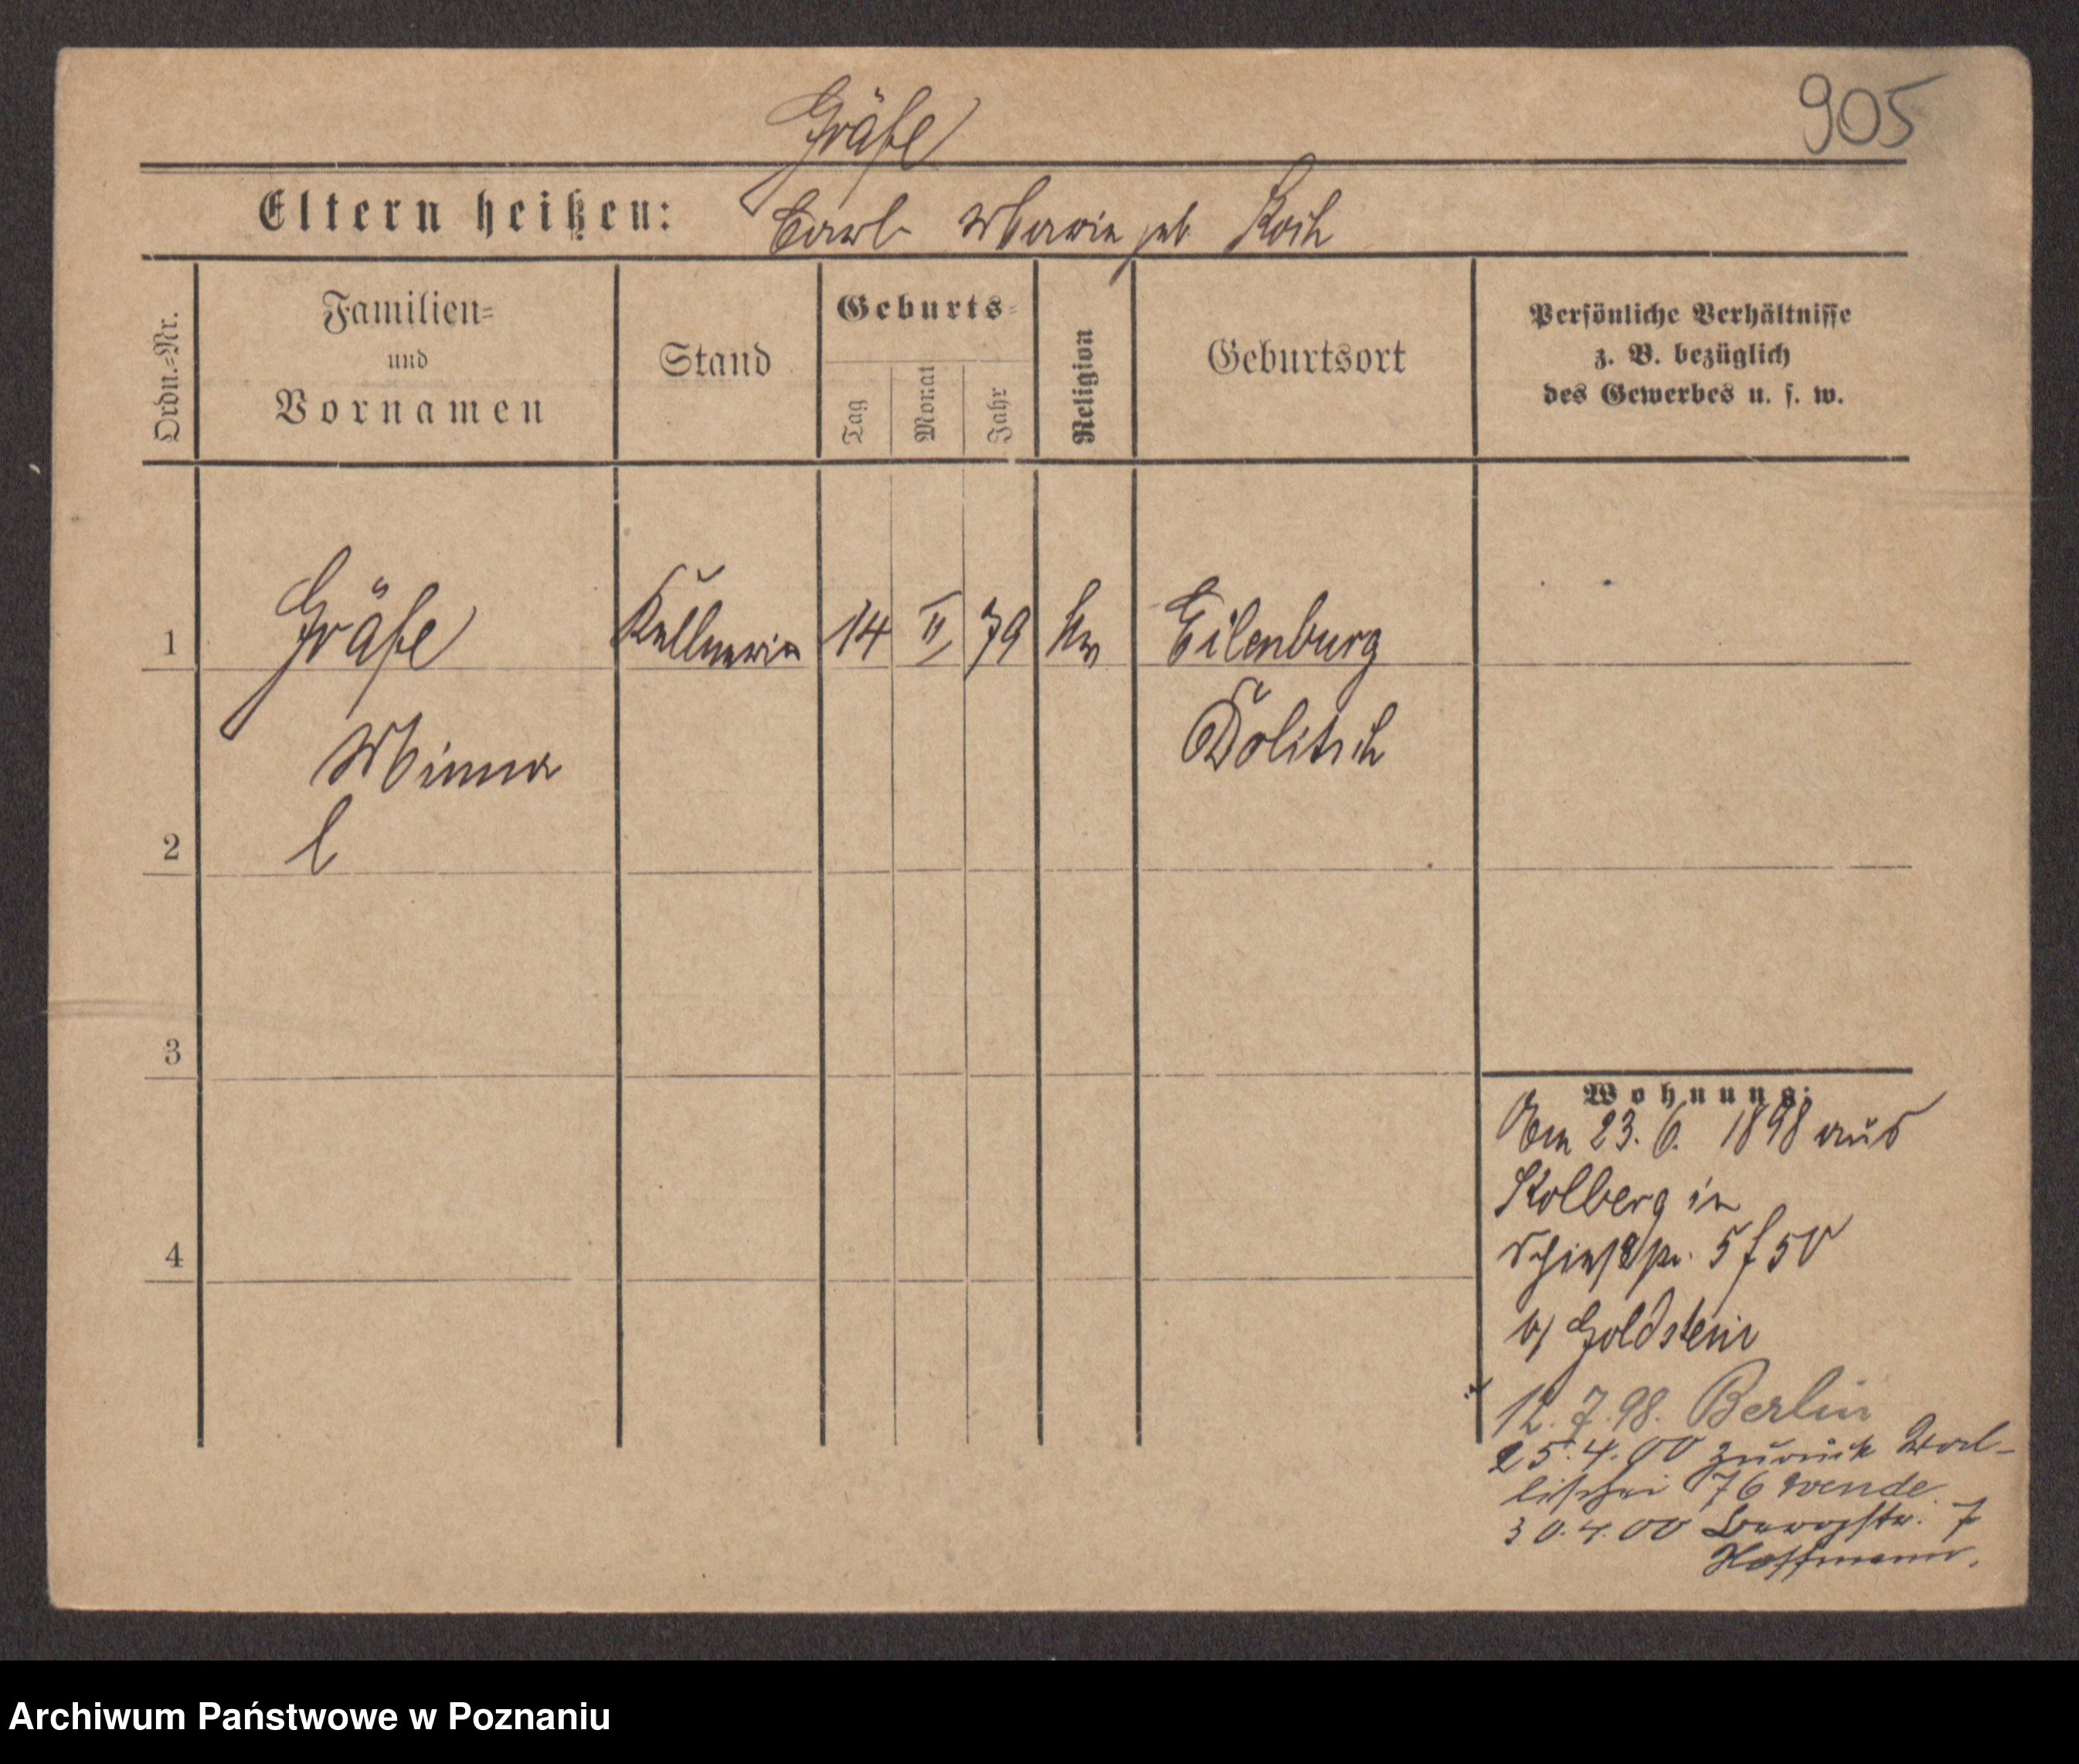 Gräfe
905
Eltern heißen: Carl Marie geb. Koch
Ordn.-Nr.
Familien-
und
Vornamen
Stand
Geburts-
Tag
Monat
Jahr
Religion
Geburtsort
Persönliche Verhältnisse
z. B. bezüglich
des Gewerbes u. s. w.
1 Gräfe Kellnerin 14 II 79 Eilenburg
Minna Dölitsch
2 l
3
4
Wohnung:
Am 23. 6. 1898 aus
Kolberg in
5 f 50
b/ Goldstein
12. 7. 98. Berlin
25. 4. 00 zurück Wal-
lischei 76 Wende
30. 4. 00 7
Hoffmann.
Archiwum Państwowe w Poznaniu